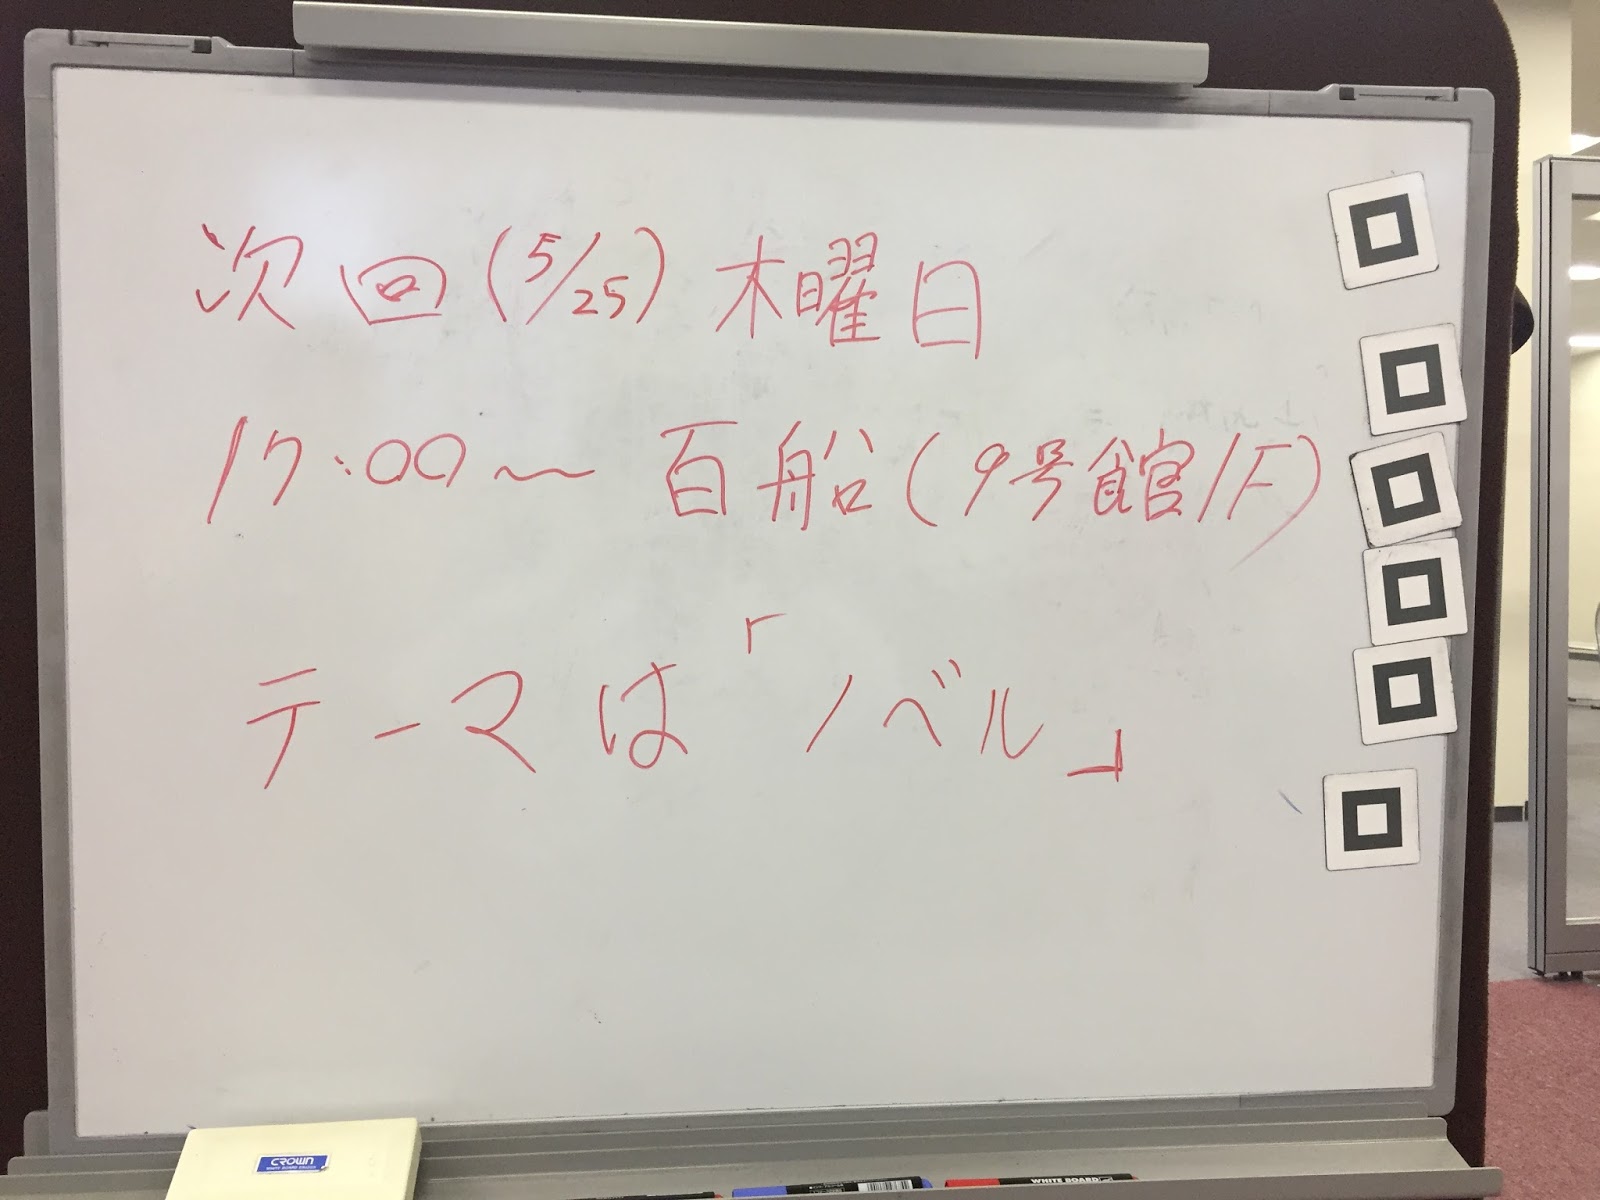 次回(5/25)木曜日
17:00〜 百船(9号館1F)
テーマは「ノベル」
CROWN
WHITE BOARD